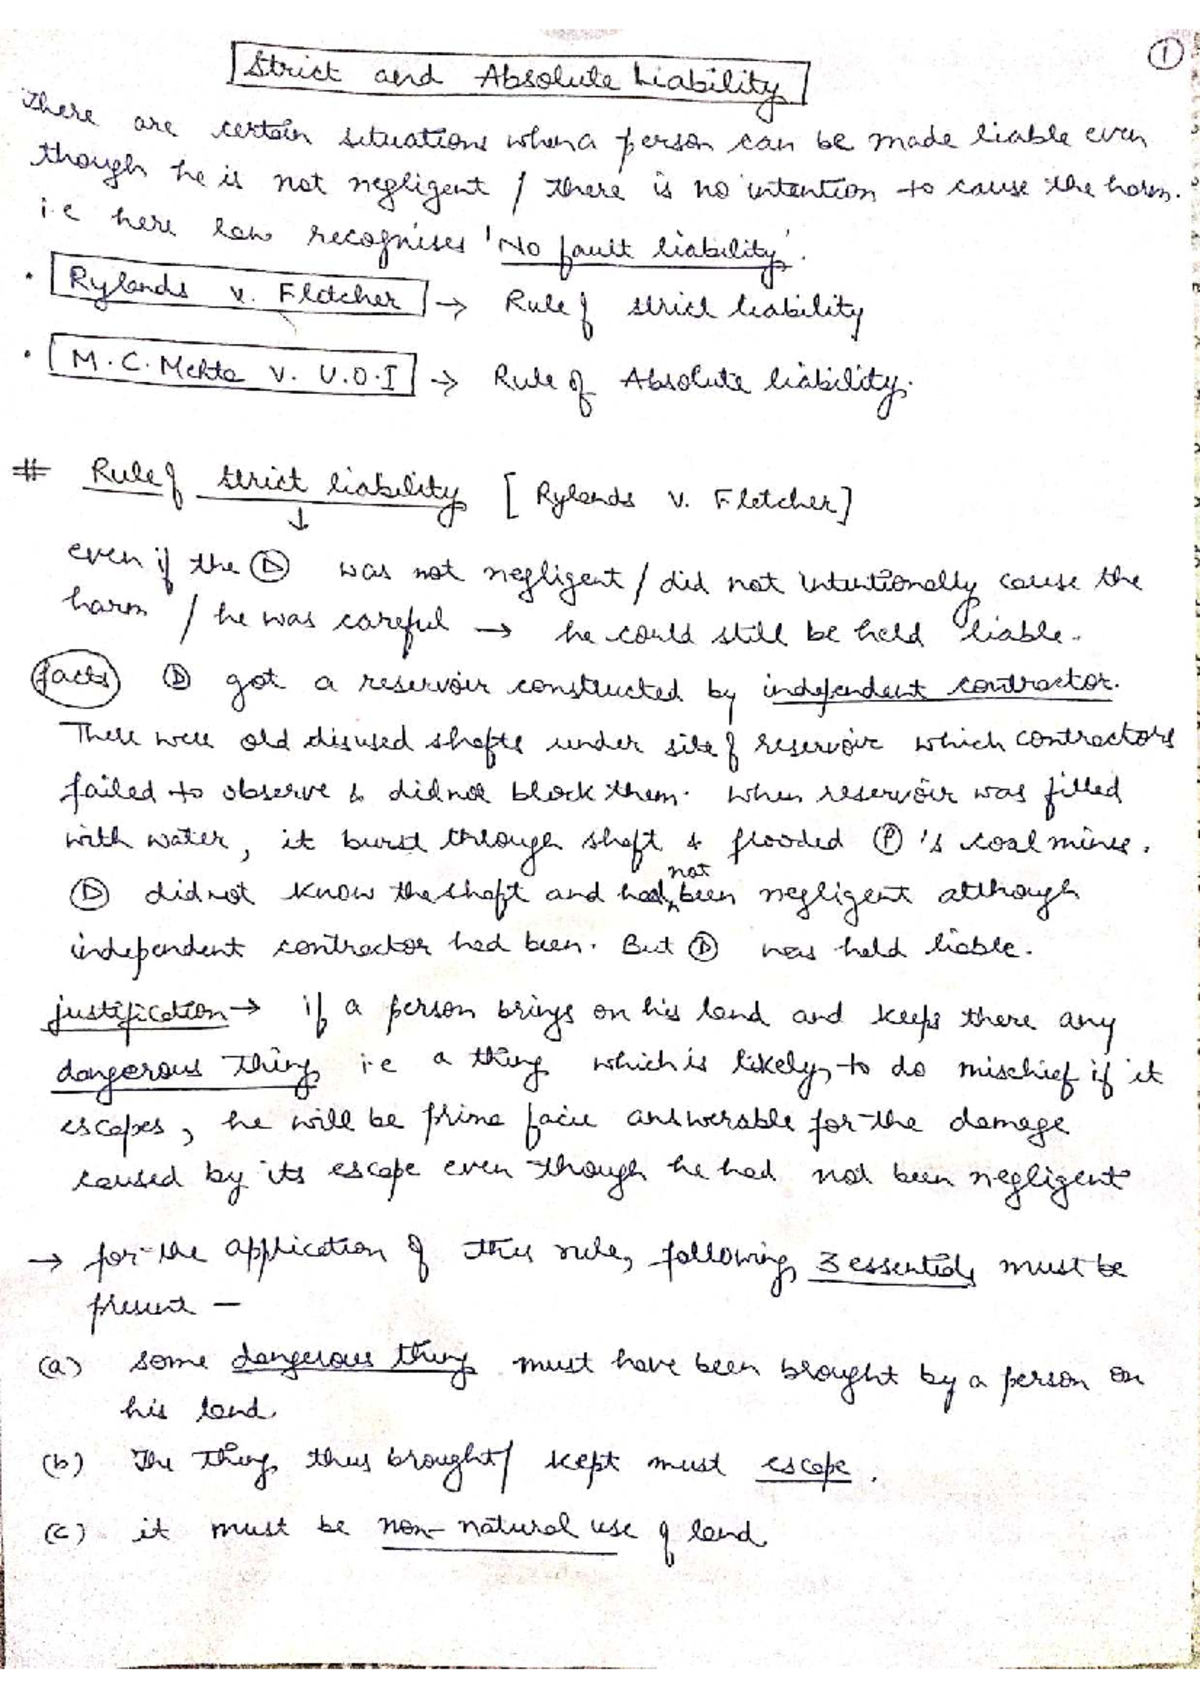 ①
Strict and Absolute Liability
There are certain situations when a person can be made liable even
though he is not negligent / there is no intention to cause the harm.
i.e here law recognises 'No fault liability'.
• Rylands v. Fletcher → Rule of strict liability
• M.C. Mehta v. U.O.I → Rule of Absolute liability.
# Rule of strict liability [Rylands v. Fletcher]
↓
even if the Ⓓ was not negligent / did not intentionally cause the
harm / he was careful → he could still be held liable.
facts Ⓓ got a reservoir constructed by independent contractor.
There were old disused shafts under site of reservoir which contractors
failed to observe & did not block them. When reservoir was filled
with water, it burst through shaft & flooded Ⓟ's coal mines.
Ⓓ did not know the shaft and had not been negligent although
independent contractor had been. But Ⓓ was held liable.
justification → if a person brings on his land and keeps there any
dangerous thing i.e a thing which is likely to do mischief if it
escapes, he will be prima facie answerable for the damage
caused by its escape even though he had not been negligent
→ for the application of this rule, following 3 essentials must be
present —
(a) some dangerous thing must have been brought by a person on
his land.
(b) The thing thus brought / kept must escape.
(c) it must be non-natural use of land.